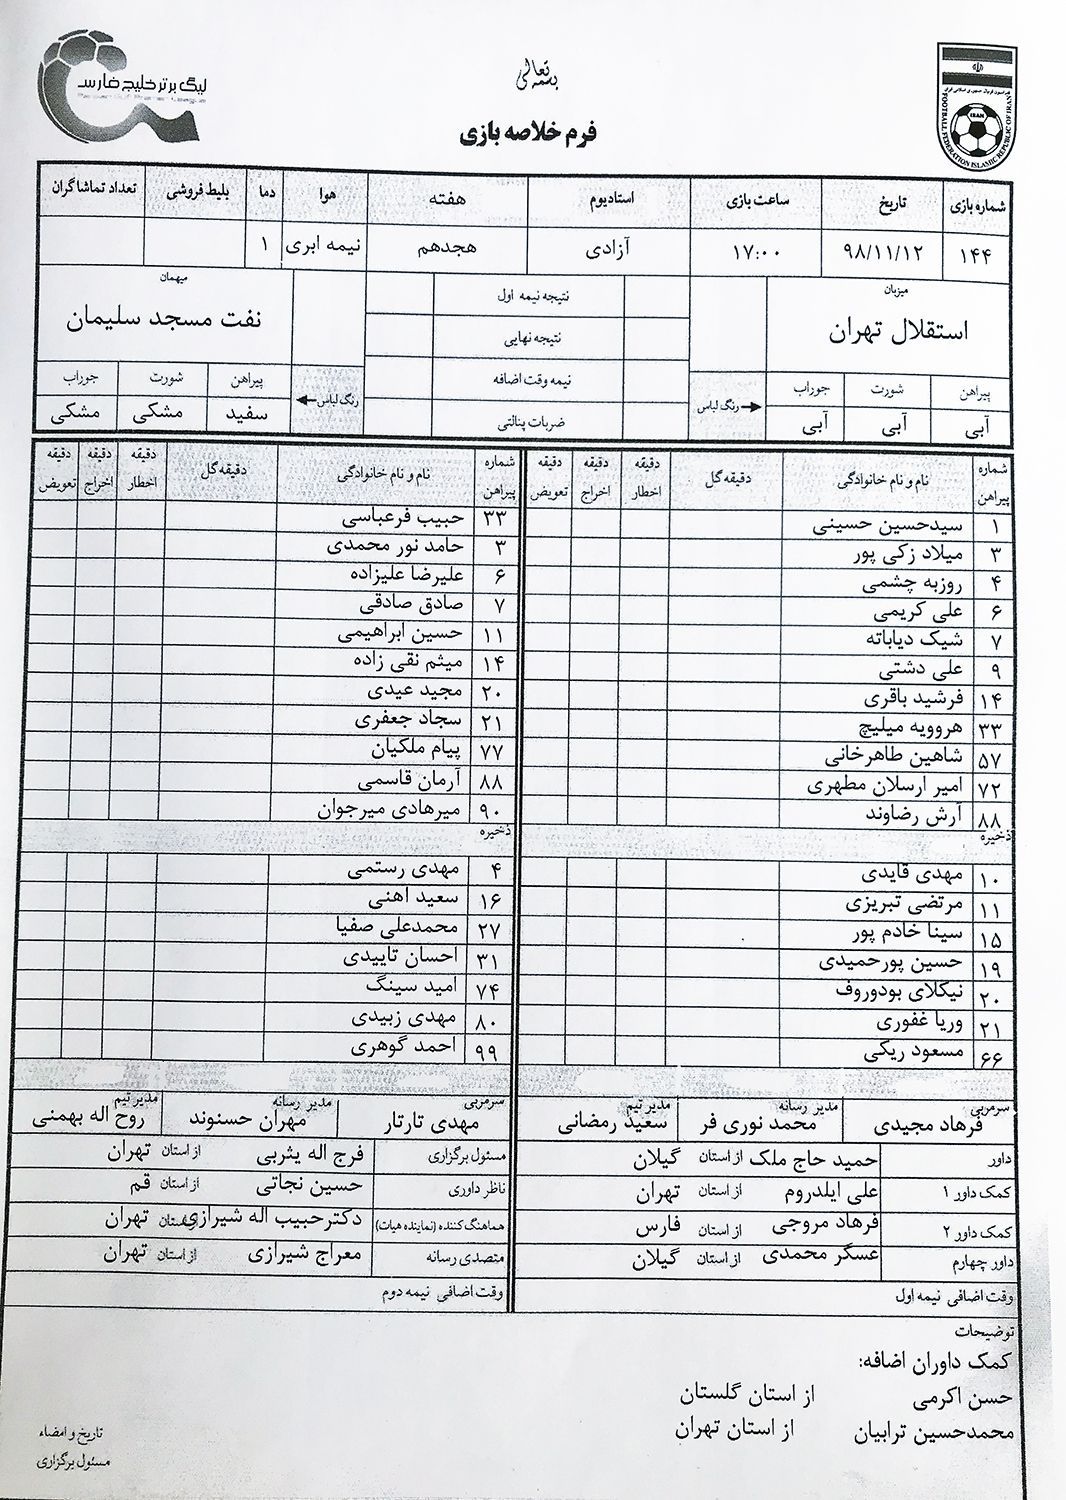 لیگ برتر خلیج فارس
بسمه تعالی
فدراسیون فوتبال جمهوری اسلامی ایران
FOOTBALL FEDERATION ISLAMIC REPUBLIC OF IRAN
IRAN
فرم خلاصه بازی
شماره بازی تاریخ ساعت بازی استادیوم هفته هوا دما بلیط فروشی تعداد تماشاگران
۱۴۴ ۹۸/۱۱/۱۲ ۱۷:۰۰ آزادی هجدهم نیمه ابری ۱
میزبان نتیجه نیمه اول میهمان
استقلال تهران نتیجه نهایی نفت مسجد سلیمان
پیراهن شورت جوراب رنگ لباس نیمه وقت اضافه رنگ لباس پیراهن شورت جوراب
آبی آبی آبی ضربات پنالتی سفید مشکی مشکی
شماره پیراهن نام و نام خانوادگی دقیقه گل دقیقه اخطار دقیقه اخراج دقیقه تعویض شماره پیراهن نام و نام خانوادگی دقیقه گل دقیقه اخطار دقیقه اخراج دقیقه تعویض
۱ سیدحسین حسینی ۳۳ حبیب فرعباسی
۳ میلاد زکی پور ۳ حامد نور محمدی
۴ روزبه چشمی ۶ علیرضا علیزاده
۶ علی کریمی ۷ صادق صادقی
۷ شیک دیاباته ۱۱ حسین ابراهیمی
۹ علی دشتی ۱۴ میثم نقی زاده
۱۴ فرشید باقری ۲۰ مجید عیدی
۳۳ هروویه میلیچ ۲۱ سجاد جعفری
۵۷ شاهین طاهرخانی ۷۷ پیام ملکیان
۷۲ امیر ارسلان مطهری ۸۸ آرمان قاسمی
۸۸ آرش رضاوند ۹۰ میرهادی میرجوان
ذخیره ذخیره
۱۰ مهدی قایدی ۴ مهدی رستمی
۱۱ مرتضی تبریزی ۱۶ سعید اهنی
۱۵ سینا خادم پور ۲۷ محمدعلی صفیا
۱۹ حسین پورحمیدی ۳۱ احسان تاییدی
۲۰ نیکلای بودوروف ۷۴ امید سینگ
۲۱ وریا غفوری ۸۰ مهدی زبیدی
۶۶ مسعود ریکی ۹۹ احمد گوهری
سرمربی مدیر رسانه مدیر تیم سرمربی مدیر رسانه مدیر تیم
فرهاد مجیدی محمد نوری فر سعید رمضانی مهدی تارتار مهران حسنوند روح اله بهمنی
داور حمید حاج ملک از استان گیلان مسئول برگزاری فرج اله یثربی از استان تهران
کمک داور ۱ علی ایلدروم از استان تهران ناظر داوری حسین نجاتی از استان قم
کمک داور ۲ فرهاد مروجی از استان فارس هماهنگ کننده (نماینده هیات) دکترحبیب اله شیرازی از استان تهران
داور چهارم عسگر محمدی از استان گیلان متصدی رسانه معراج شیرازی از استان تهران
وقت اضافی نیمه اول وقت اضافی نیمه دوم
توضیحات
کمک داوران اضافه:
حسن اکرمی از استان گلستان
محمدحسین ترابیان از استان تهران
تاریخ و امضاء
مسئول برگزاری